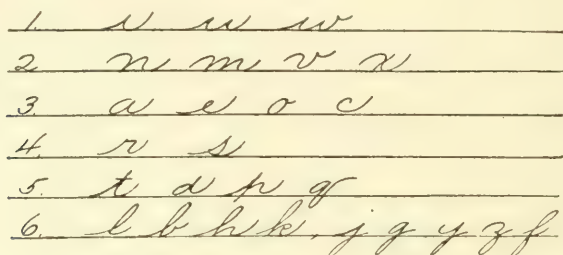 1. i u w
2 n m v x
3. a e o c
4. r s
5. t d p q
6. l b h k, j g y z f